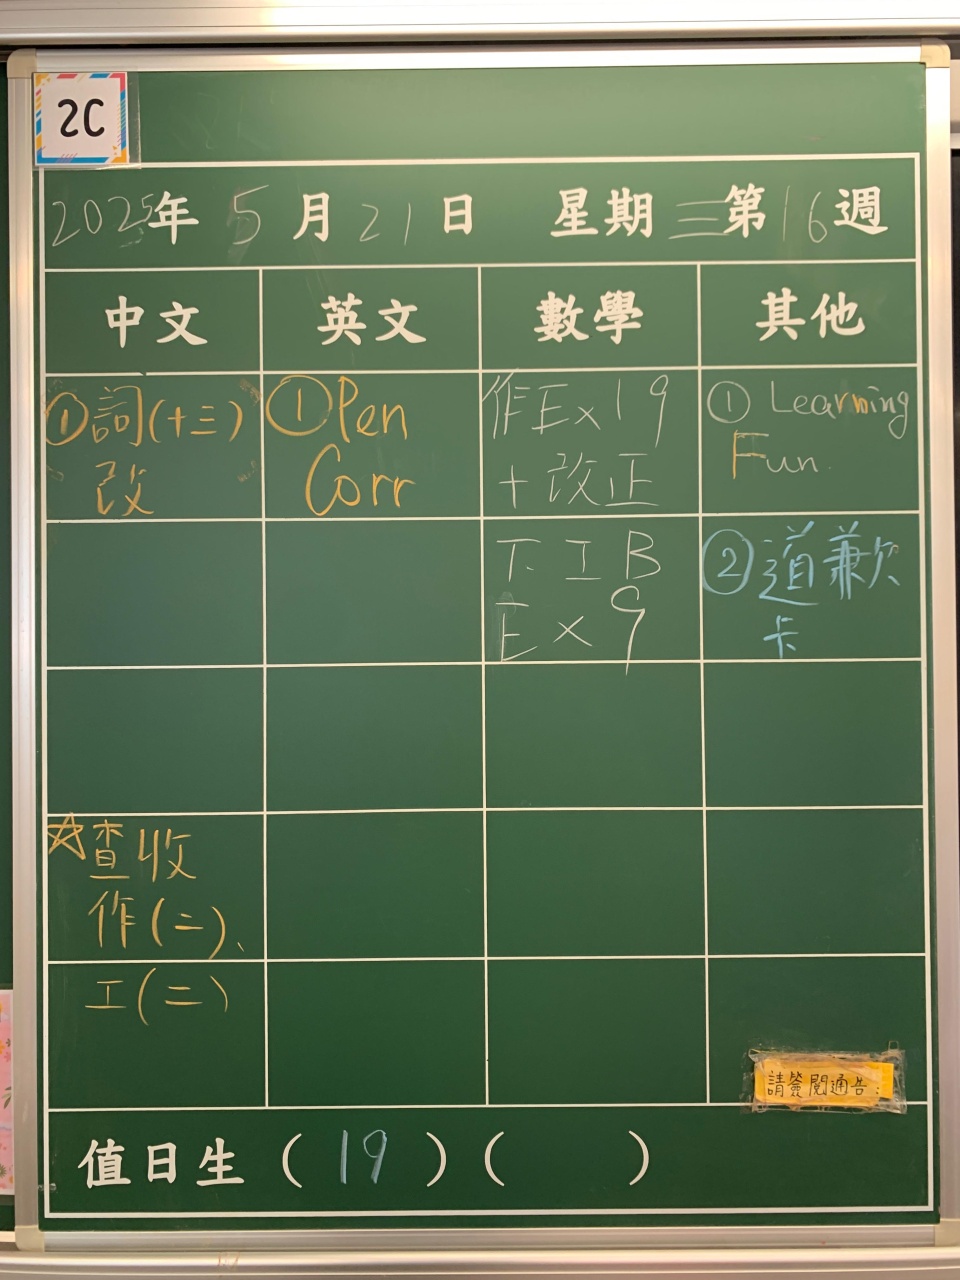 2C
2025年 5月 21日 星期三 第16週
中文 英文 數學 其他
①詞(十三)
改
①Pen
Corr
作Ex19
+改正
①Learning
Fun.
下工B
Ex9
②道歉
卡
☆查收
作(二)、
工(二)
請簽閱通告.
值日生(19)( )